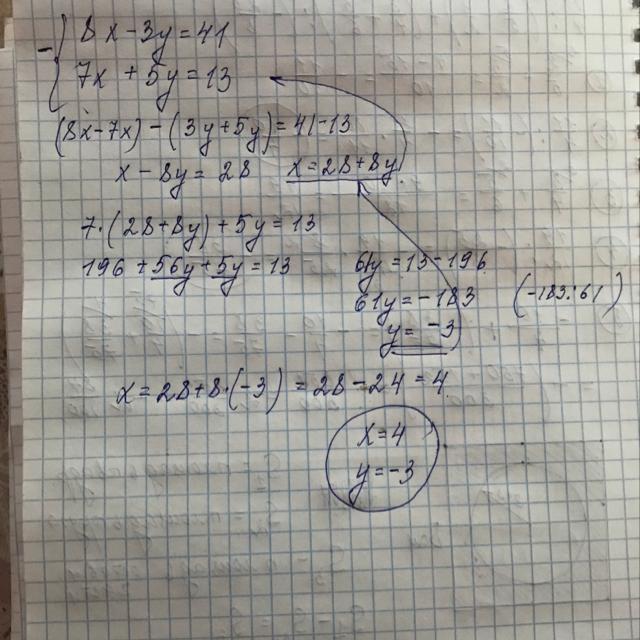 8x-3y=41
7x+5y=13
(8x-7x)-(3y+5y)=41-13
x-8y=28 x=28+8y
7·(28+8y)+5y=13
196+56y+5y=13
61y=13-196
61y=-183 (-183:61)
y=-3
x=28+8·(-3)=28-24=4
x=4
y=-3